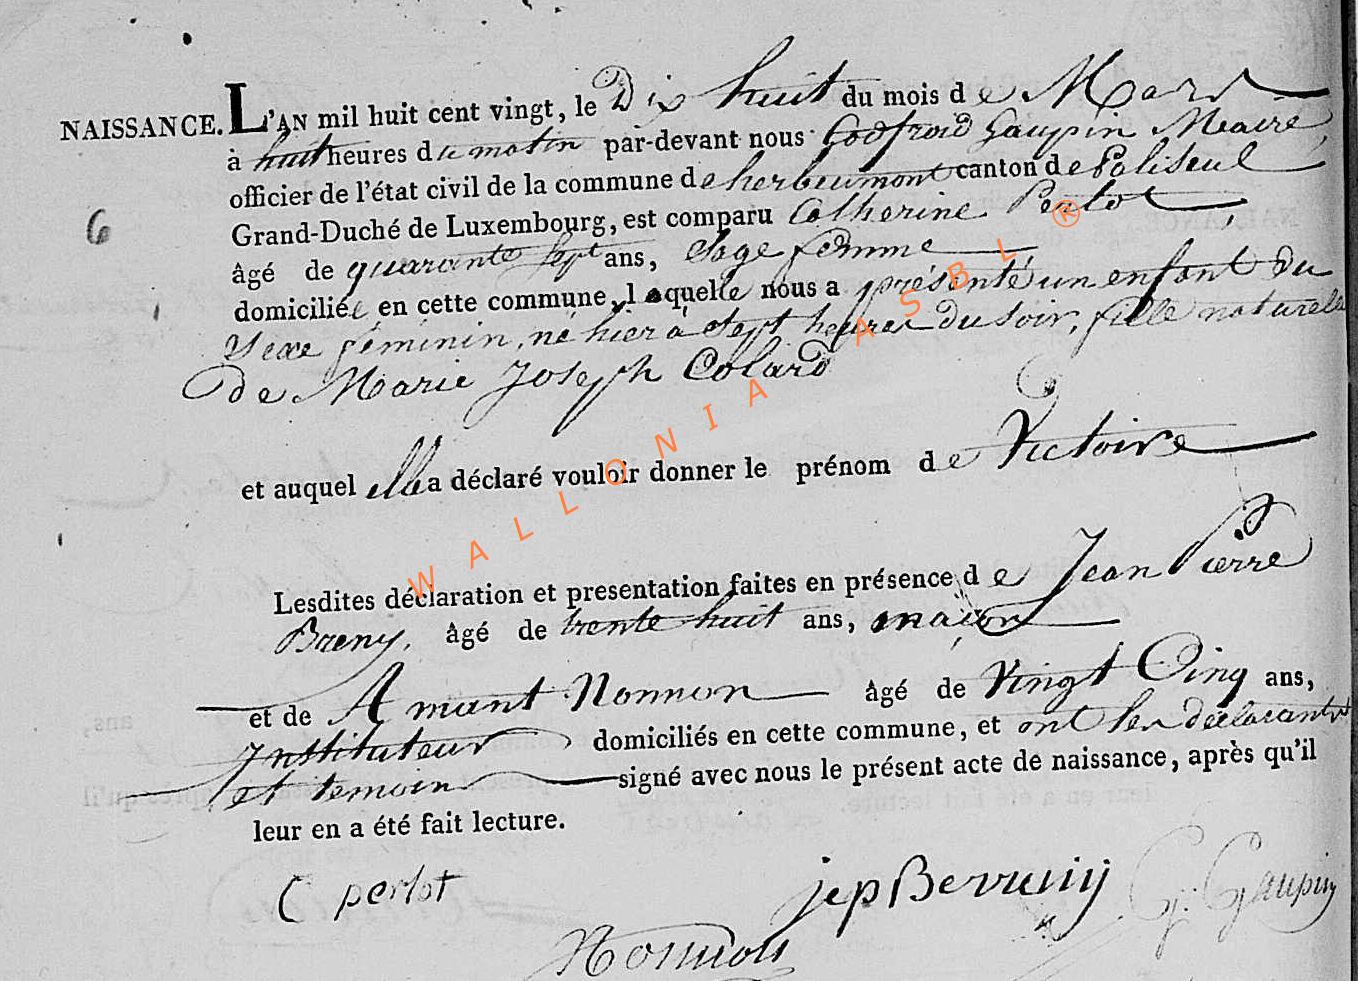 NAISSANCE. L'AN mil huit cent vingt, le Dix huit du mois de Mars
à huit heures du matin par-devant nous Godfroid Gaupin Maire
officier de l'état civil de la commune de herbeumont canton de Paliseul
6
Grand-Duché de Luxembourg, est comparu Catherine Perlot
âgé de quarante Sept ans, Sage femme
domiciliée en cette commune, laquelle nous a présenté un enfant du
Sexe féminin, né hier à Sept heures du Soir, fille naturelle
de Marie Joseph Colard
et auquel elle a déclaré vouloir donner le prénom de Victoire
Lesdites déclaration et presentation faites en présence de Jean Pierre
âgé de trente huit ans, maçon
et de Amant Nonnon âgé de Vingt Cinq ans,
Instituteur domiciliés en cette commune, et ont les déclarants
et temoin signé avec nous le présent acte de naissance, après qu'il
leur en a été fait lecture.
C perlot
G. Gaupin
WALLONIA ASBL ®